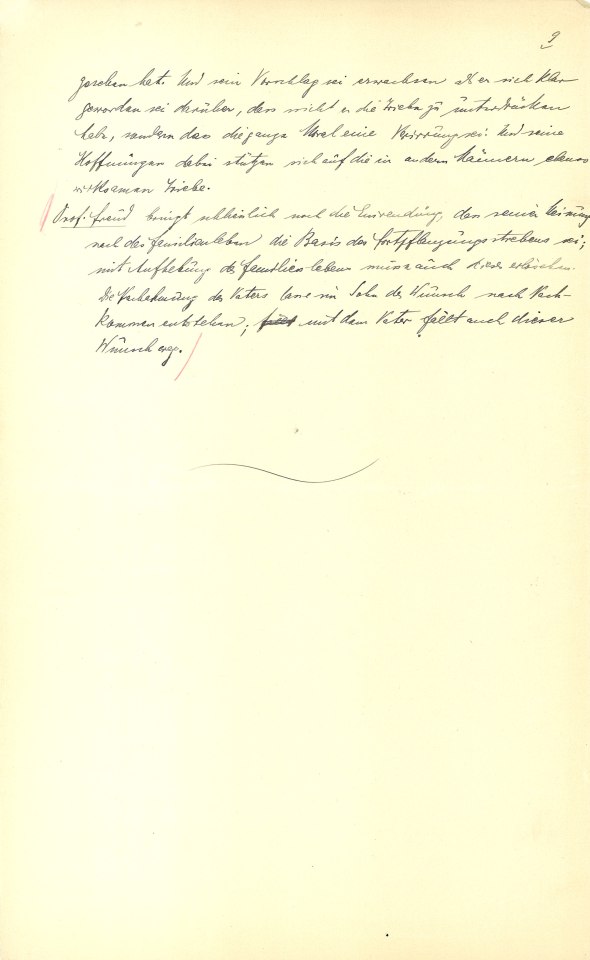 9
gesehen hat. Und sein Vorschlag sei erwachsen als er sich klar
geworden sei darüber, dass nicht er die Triebe zu unterdrücken
habe, sondern dass die ganze Moral eine Verirrung sei. Und seine
Hoffnungen dabei stützen sich auf die in andern Männern ebenso
wirksamen Triebe.
Prof. Freud bringt schliesslich noch die Einwendung, dass seiner Meinung
nach das Familienleben die Basis des Fortpflanzungsstrebens sei;
mit Aufhebung des Familienlebens müsse auch dieses erlöschen.
Die Nachahmung des Vaters lasse im Sohn den Wunsch nach Nach-
kommen entstehen; mit dem Vater fällt auch dieser
Wunsch weg.